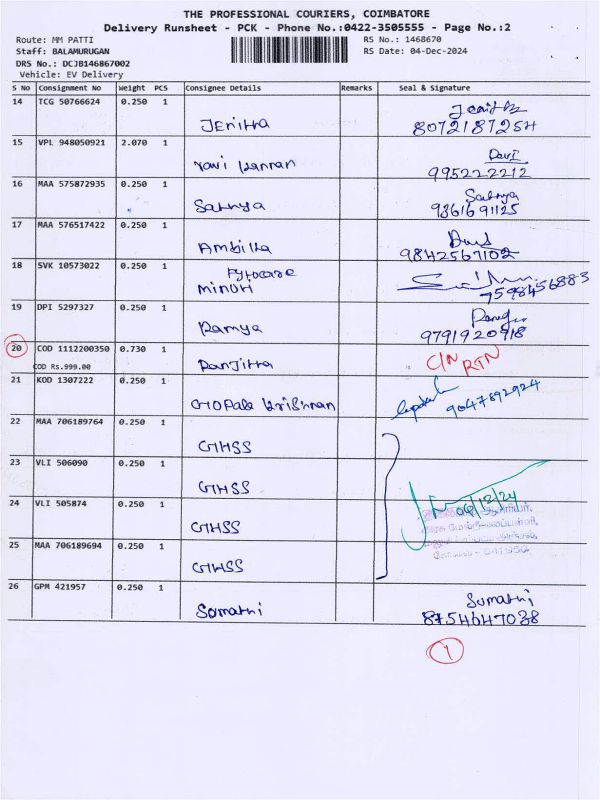 THE PROFESSIONAL COURIERS, COIMBATORE
Delivery Runsheet - PCK - Phone No.:0422-3505555 - Page No.:2
Route: MM PATTI RS No.: 1468670
Staff: BALAMURUGAN RS Date: 04-Dec-2024
DRS No.: DCJB146867002
Vehicle: EV Delivery
S No Consignment No Weight PCS Consignee Details Remarks Seal & Signature
14 TCG 50766624 0.250 1
Jenitta 8072187254
15 VPL 948050921 2.070 1
Ravi Kannan 995222212
16 MAA 575872935 0.250 1 Sathya
Sathya 9361691125
17 MAA 576517422 0.250 1
Ambika 9842567102
18 SVK 10573022 0.250 1
7598456883
19 DPI 5297327 0.250 1
Ramya 9791920918
20 COD 1112200350 0.730 1 C/N RTN
COD Rs.999.00 Ranjitha
21 KOD 1307222 0.250 1
Gopala Krishnan 9047892924
22 MAA 706189764 0.250 1
GHSS
23 VLI 506090 0.250 1
GHSS
24 VLI 505874 0.250 1
GHSS 04/12/24
25 MAA 706189694 0.250 1
GHSS
26 GPM 421957 0.250 1 Sumathi
Sumathi 8754647038
1